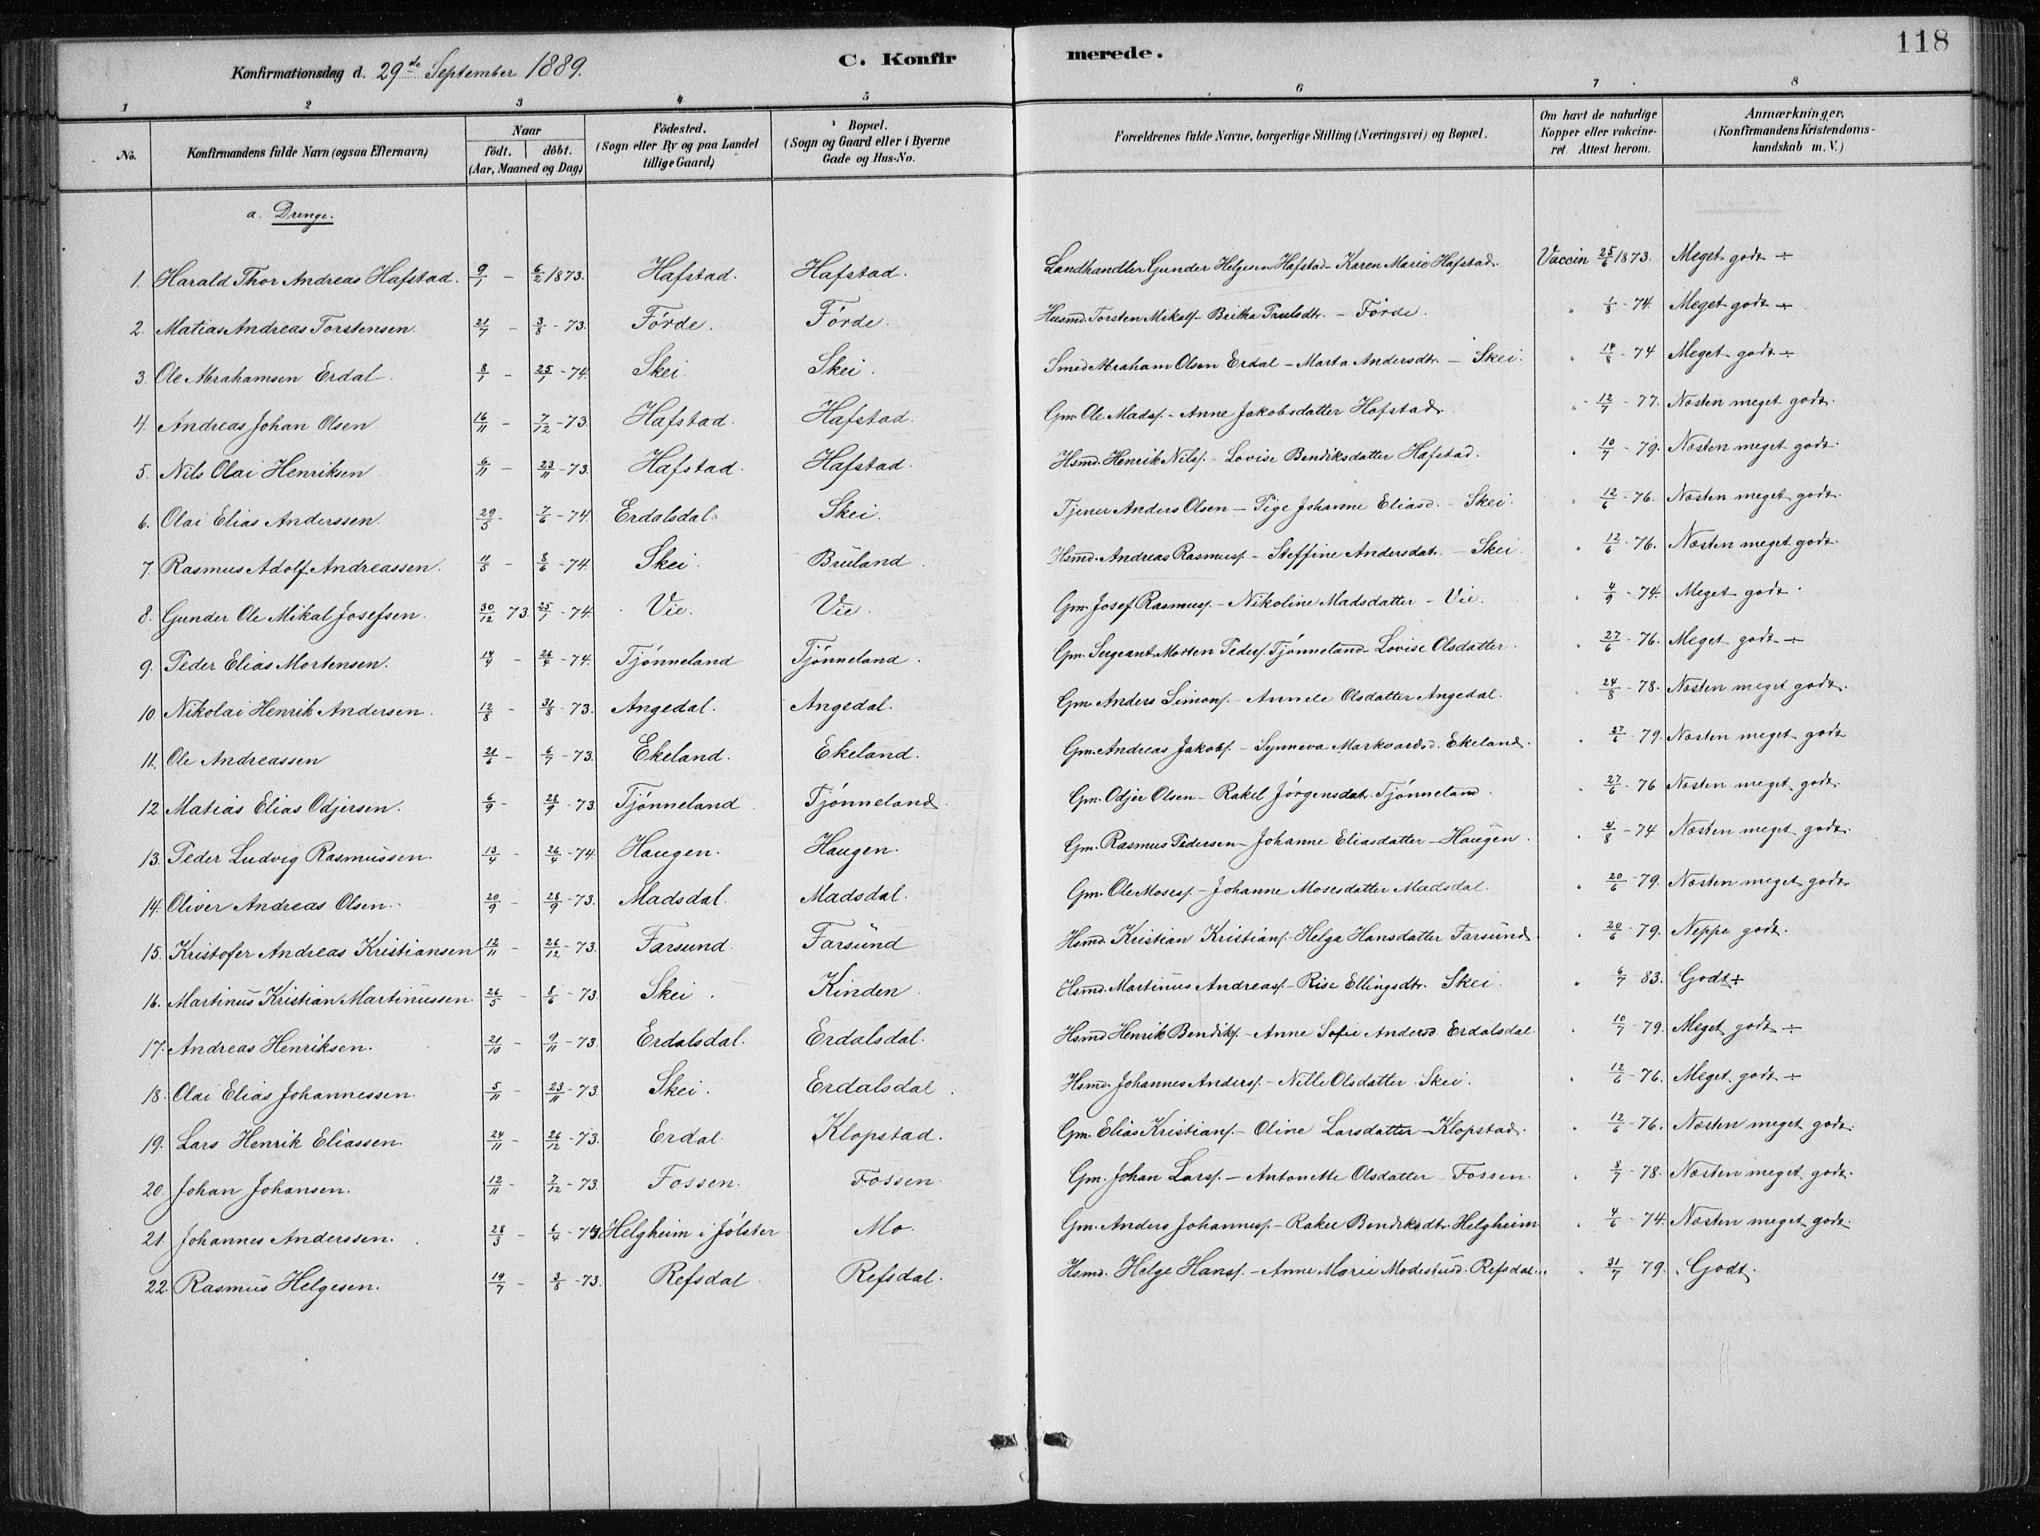 118
Konfirmationsdag d. 29de September 1889. C. Konfirmerede.
1 2 3 4 5 6 7 8
No. Konfirmandens fulde Navn (ogsaa Efternavn) Naar födt. döbt. (Aar, Maaned og Dag) Födested. (Sogn eller By og paa Landet tillige Gaard) Bopæl. (Sogn og Gaard eller i Byerne Gade og Hus-No. Forældrenes fulde Navne, borgerlige Stilling (Næringsvei) og Bopæl. Om havt de naturlige Kopper eller vaccineret Attest herom. Anmærkninger. (Konfirmandens Kristendomskundskab m. V.)
a. Drenge.
1. Harald Thor Andreas Hafstad. 9/1 - 6/2 1873. Hafstad. Hafstad. Landhandler Gunder Helgesen Hafstad - Karen Marie Hafstad. Vaccin 25/6 1873. Meget godt ÷
2. Matias Andreas Torstensen. 21/7 - 3/8 - 73. Förde. Förde. Husmd. Torsten Mikals. - Britha Paulsdtr. - Förde. " 1/8 - 74. Meget godt ÷
3. Ole Abrahamsen Erdal. 8/1 - 25/1 - 74. Skei. Skei. Smed Abraham Olsen Erdal - Marta Andersdtr. - Skei. " 14/8 - 74 Meget godt ÷
4. Andreas Johan Olsen 16/11 - 7/12 - 73. Hafstad. Hafstad. Gm. Ole Mads. - Anne Jakobsdatter Hafstad. " 12/7 - 77. Næsten meget godt.
5. Nils Olai Henriksen 6/11 - 23/11 - 73. Hafstad. Hafstad. Hsmd. Henrik Nils. - Lovise Bendiksdatter Hafstad. " 10/7 - 79. Næsten meget godt.
6. Olai Elias Anderssen. 29/5 - 7/6 - 74. Erdalsdal. Skei. Tjener Anders Olsen - Pige Johanne Eliasd. - Skei. " 12/6 - 76. Næsten meget godt.
7. Rasmus Adolf Andreassen. 11/5 - 8/6 - 74. Skei. Bruland. Hsmd. Andreas Rasmus. - Steffine Andersdat. - Skei. " 12/6 - 76. Næsten meget godt.
8. Gunder Ole Mikal Josefsen. 30/12 73. 25/1 - 74. Vie. Vie. Gm. Josef Rasmus. - Nikoline Madsdatter - Vie. " 4/9 - 74. Meget godt.
9. Peder Elias Mortensen. 14/4 - 26/4 - 74. Tjönneland Tjönneland. Gm. Sergeant Morten Peders. Tjönneland - Lovise Olsdatter. " 27/6 - 76. Meget godt ÷
10. Nikolai Henrik Andersen. 12/8 - 31/8 - 73. Angedal. Angedal. Gm. Anders Simons. - Annele Olsdatter Angedal. " 24/8 - 78. Næsten meget godt.
11. Ole Andreassen 21/6 - 6/7 - 73. Ekeland. Ekeland. Gm. Andreas Jakobs. - Synneva Markvardsd. Ekeland. " 27/6 - 79. Næsten meget godt
12. Matias Elias Odjersen. 6/9 - 28/9 - 73. Tjönneland Tjönneland. Gm. Odjer Olsen - Rakel Jörgensdat. Tjönneland. " 27/6 - 76 Næsten meget godt.
13. Peder Ludvig Rasmussen. 13/4 - 26/4 - 74 Haugen. Haugen. Gm. Rasmus Pedersen - Johanne Eliasdatter - Haugen. " 4/8 - 74 Næsten meget godt.
14. Oliver Andreas Olsen. 20/9 - 28/9 - 73. Madsdal. Madsdal. Gm. Ole Moses. - Johanne Mosesdatter Madsdal. " 20/6 - 79. Næsten meget godt.
15. Kristofer Andreas Kristiansen 12/11 - 26/12 - 73. Farsund. Farsund Hsmd. Kristian Kristians. - Helga Hansdatter Farsund. " 20/6 - 79. Neppe godt.
16. Martinus Kristian Martinussen. 26/5 - 8/6 - 73. Skei. Kinden. Hsmd. Martinus Andreas. - Rise Ellingsdtr. Skei. " 6/7 83. Godt ÷
17. Andreas Henriksen. 21/10 - 9/11 - 73. Erdalsdal. Erdalsdal. Hsmd Henrik Bendiks. - Anne Sofie Andersd Erdalsdal " 10/7 - 79. Meget godt ÷
18. Olai Elias Johannessen. 5/11 - 23/11 - 73. Skei. Erdalsdal. Hsmd. Johannes Anders. - Nille Olsdatter. Skei. " 12/6 - 76. Meget godt ÷
19. Lars Henrik Eliassen. 24/11 - 26/12 - 73. Erdal Klopstad. Gm. Elias Kristians. - Oline Larsdatter - Klopstad. " 12/6 - 76. Næsten meget godt.
20. Johan Johansen. 12/11 - 7/12 - 73. Fossen. Fossen. Gm. Johan Lars. - Antonette Olsdatter - Fossen. " 8/7 - 78. Næsten meget godt.
21. Johannes Anderssen. 28/3 - 6/4 - 73 Helgheim i Jölster Mo. Gm. Anders Johannes. - Rakel Bendiksdtr. Helgheim " 4/6 - 74. Næsten meget godt.
22. Rasmus Helgesen. 19/7 - 3/8 - 73. Refsdal. Refsdal. Hsmd. Helge Hans. - Anne Marie Refsdal. " 31/7 - 79. Godt.